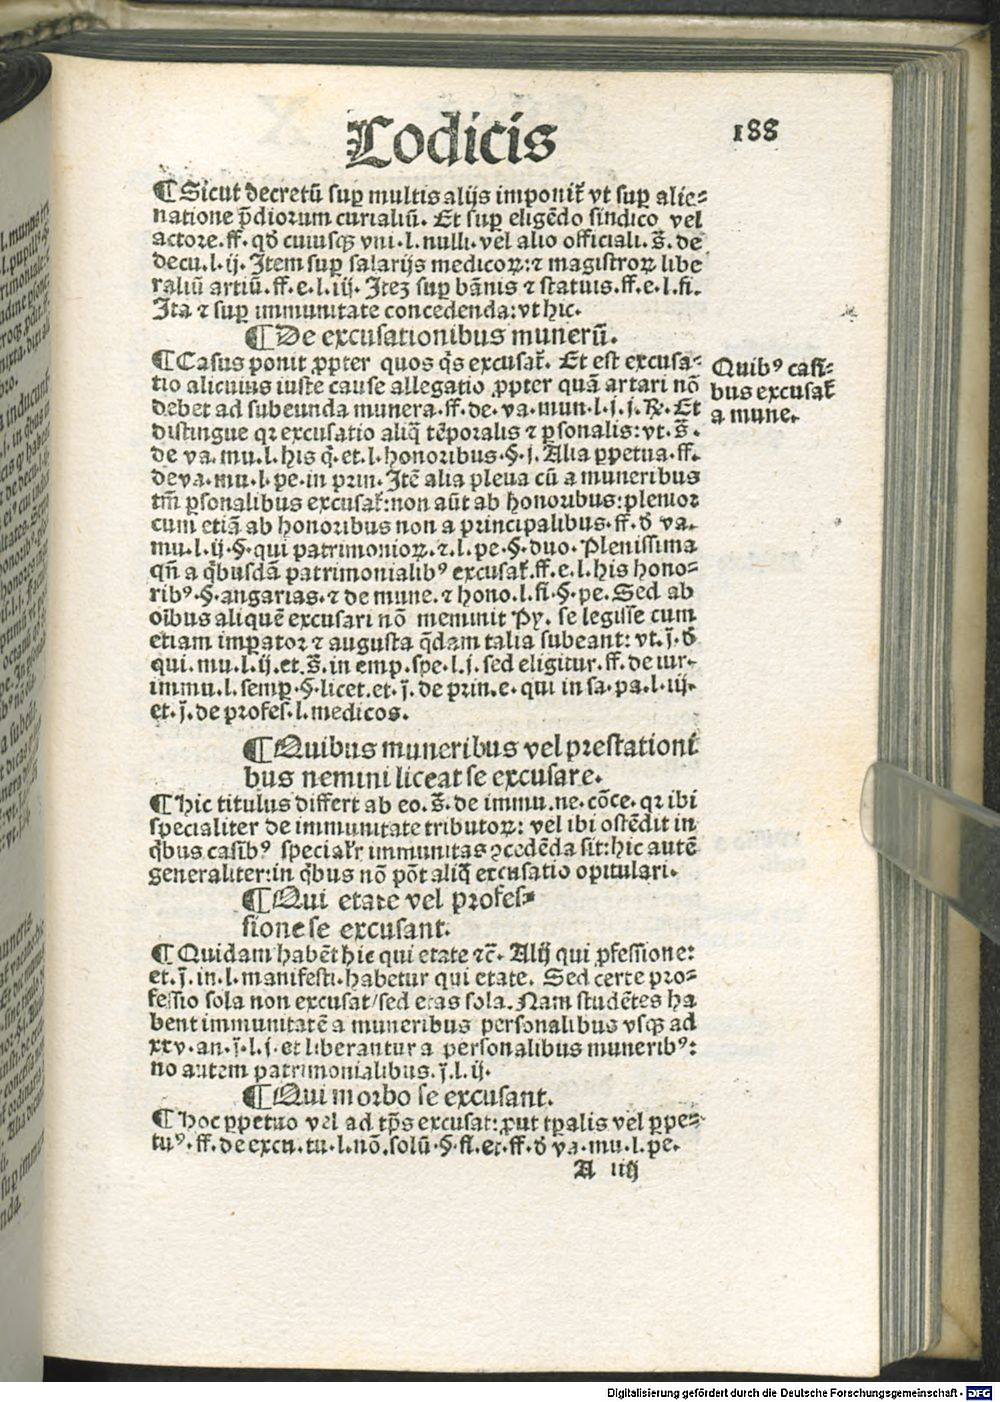 Codicis
188
¶ Sicut decretū suꝑ multis alijs imponit᷑ vt suꝑ alie⸗
natione p̄diorum curialiū. Et suꝑ eligēdo sindico vel
actore. ff. qđ cuiusqꝫ vni. l. nulli. vel alio officiali. s̄. de
decu. l. ij. Item suꝑ salarijs medicoꝝ: ⁊ magistroꝝ libe
raliū artiū. ff. e. l. iij. Itez suꝑ bānis ⁊ statuis. ff. e. l. fi.
Ita ⁊ suꝑ immunitate concedenda: vt hic.
¶ De excusationibus munerū.
¶ Casus ponit ꝓpter quos q̄s excusat᷑. Et est excusa⸗
tio alicuius iuste cause allegatio ꝓpter quā artari nō
debet ad subeunda munera. ff. de. va. mun. l. j. j. R̄. Et
distingue qꝛ excusatio aliq̄ tēporalis ⁊ ꝑsonalis: vt. s̄.
de va. mu. l. his q̄. et. l. honoribus. §. j. Alia ꝑpetua. ff.
de va. mu. l. pe. in prin. Itē alia plena cū a muneribus
tm̄ ꝑsonalibus excusat᷑: non aūt ab honoribus: plenior
cum etiā ab honoribus non a principalibus. ff. đ va.
mu. l. ij. §. qui patrimonioꝝ. ⁊. l. pe. §. duo. Plenissima
qn̄ a q̄busdā patrimonialibꝰ excusat᷑. ff. e. l. his hono⸗
ribꝰ. §. angarias. ⁊ de mune. ⁊ hono. l. fi. §. pe. Sed ab
oībus aliquē excusari nō meminit Py. se legisse cum
etiam imꝑator ⁊ augusta q̄dam talia subeant: vt. j̄. đ
qui. mu. l. ij. et. s̄. in emp. spe. l. j. sed eligitur. ff. de iur.
immu. l. semꝑ. §. licet. et. j̄. de prin. e. qui in sa. pa. l. iij.
et. j̄. de profes. l. medicos.
Quibꝰ casi⸗
bus excusat᷑
a mune.
¶ Quibus muneribus vel prestationi
bus nemini liceat se excusare.
¶ Hic titulus differt ab eo. s̄. de immu. ne. cōce. qꝛ ibi
specialiter de immunitate tributoꝝ: vel ibi ostēdit in
q̄bus casibꝰ specialr̄ immunitas ꝯcedēda sit: hic autē
generaliter: in q̄bus nō pōt aliq̄ excusatio opitulari.
¶ Qui etate vel profes⸗
sione se excusant.
¶ Quidam habēt hic qui etate ⁊c̄. Alij qui ꝓfessione:
et. j̄. in. l. manifesti. habetur qui etate. Sed certe pro⸗
fessio sola non excusat/sed etas sola. Nam studētes ha
bent immunitatē a muneribus personalibus vsqꝫ ad
xxv. an. j̄. l. j. et liberantur a personalibus muneribꝰ:
no autem patrimonialibus. j̄. l. ij.
¶ Qui morbo se excusant.
¶ Hoc ꝑpetuo vel ad tp̄s excusat: ꝓut tꝑalis vel ꝑpe⸗
tuꝰ. ff. de excu. tu. l. nō. solū. §. fi. et. ff. đ va. mu. l. pe.
A iiij
Digitalisierung gefördert durch die Deutsche Forschungsgemeinschaft - DFG